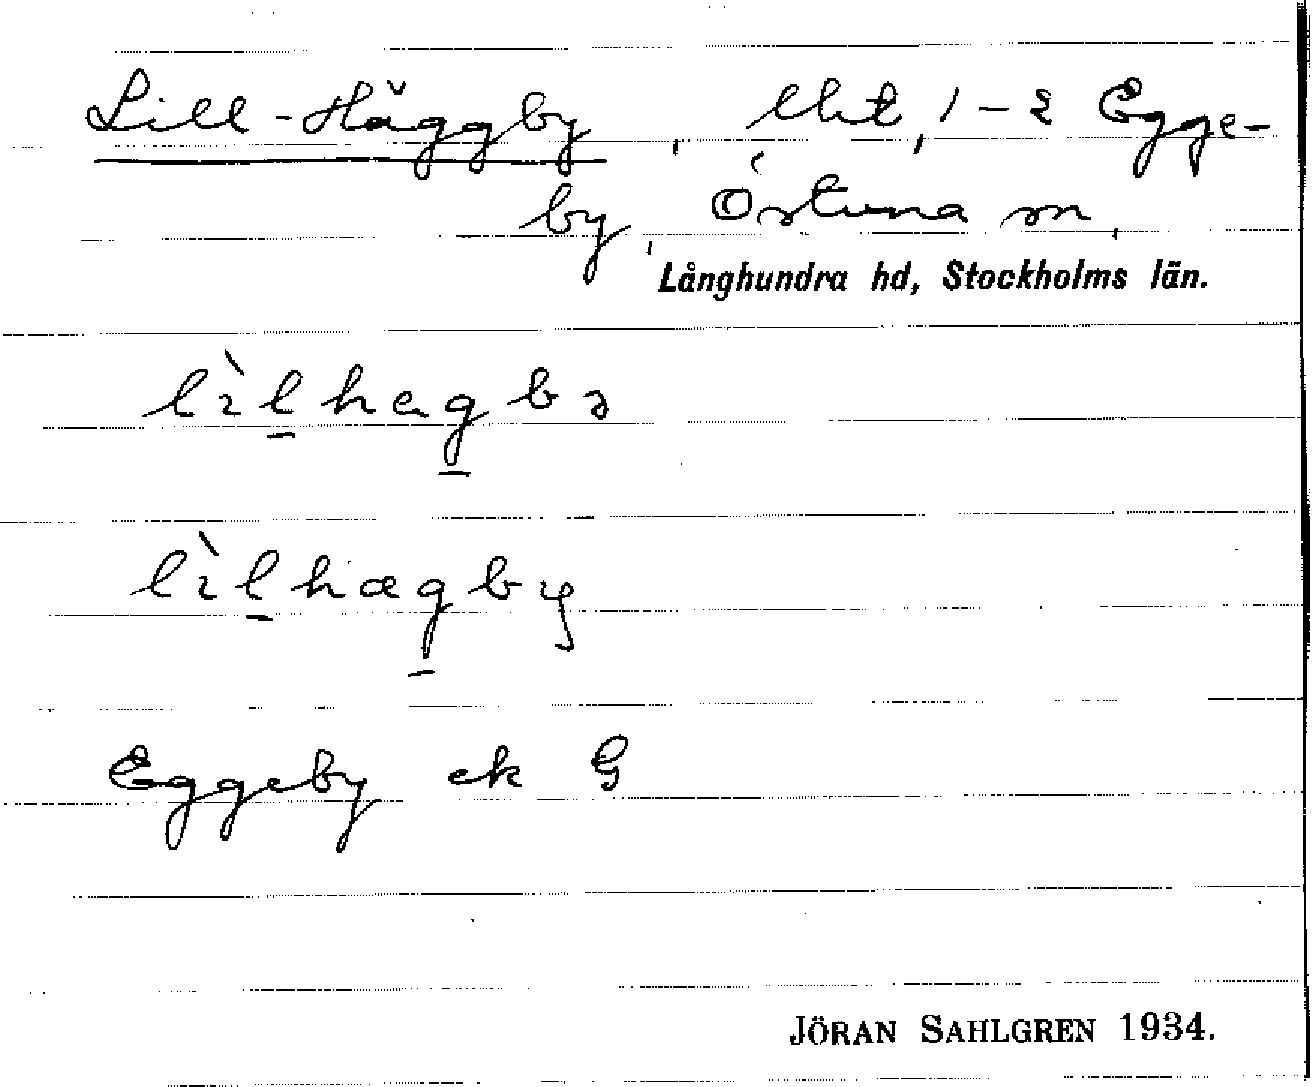 Lill-Häggby, lht, 1-2 Egge-
by, Östuna sn,
Långhundra hd, Stockholms län.
lìlhagbə
lìlhægby
Eggeby ek G
JÖRAN SAHLGREN 1934.